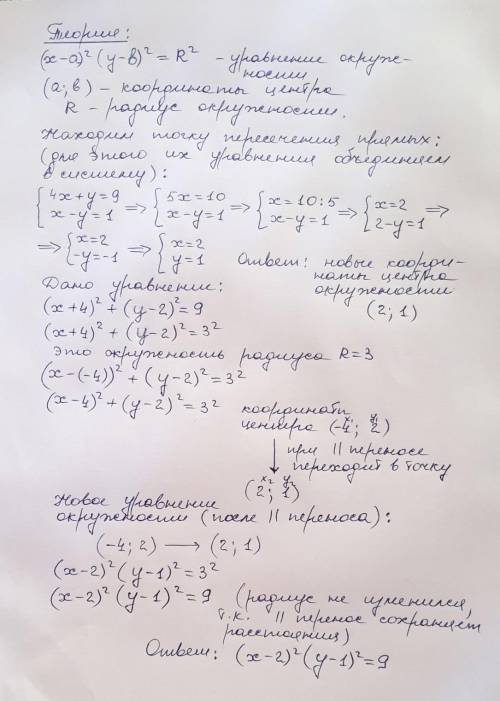 Теория:
(x-a)²(y-в)² = R² - уравнение окруж-
ности
(a; в) - координаты центра
R - радиус окружности.
Находим точку пересечения прямых:
(для этого их уравнения объединяем
в систему):
{4x+y=9 x-y=1 ⇒ {5x=10 x-y=1 ⇒ {x=10:5 x-y=1 ⇒ {x=2 2-y=1 ⇒
⇒ {x=2 -y=-1 ⇒ {x=2 y=1
Ответ: новые коорди-
наты центра
окружности
(2; 1)
Дано уравнение:
(x+4)² + (y-2)² = 9
(x+4)² + (y-2)² = 3²
Это окружность радиуса R=3
(x-(-4))² + (y-2)² = 3²
(x-4)² + (y-2)² = 3²
координаты
центра (-4; 2)
x₁ y₁
↓ при || переносе
переходит в точку
x₂ y₂
(2; 1)
Новое уравнение
окружности (после || переноса):
(-4; 2) → (2; 1)
(x-2)²(y-1)² = 3²
(x-2)²(y-1)² = 9 (радиус не изменился,
т.к. || перенос сохраняет
расстояния)
Ответ: (x-2)²(y-1)² = 9